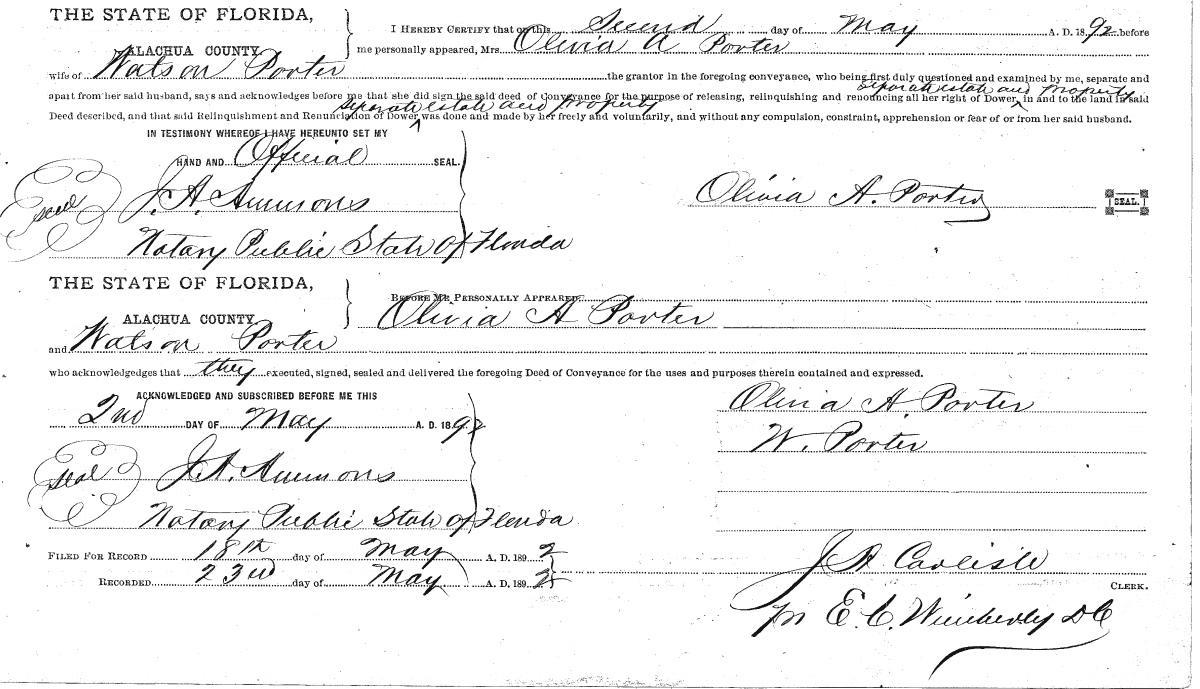 THE STATE OF FLORIDA,
ALACHUA COUNTY
I HEREBY CERTIFY that on this Second day of May A. D. 1892 before
me personally appeared, Mrs. Olivia A Porter
wife of Watson Porter the grantor in the foregoing conveyance, who being first duly questioned and examined by me, separate and
separate estate and property
apart from her said husband, says and acknowledges before me that she did sign the said deed of Conveyance for the purpose of releasing, relinquishing and renouncing all her right of Dower ^ in and to the land in said
separate estate and property
Deed described, and that said Relinquishment and Renunciation of Dower ^ was done and made by her freely and voluntarily, and without any compulsion, constraint, apprehension or fear of or from her said husband.
IN TESTIMONY WHEREOF I HAVE HEREUNTO SET MY
HAND AND Official SEAL.
seal J. A. Ammons
Olivia A. Porter SEAL.
Notary Public State of Florida
THE STATE OF FLORIDA,
ALACHUA COUNTY
BEFORE ME PERSONALLY APPEARED
Olivia A Porter
and Watson Porter
who acknowledgedges that they executed, signed, sealed and delivered the foregoing Deed of Conveyance for the uses and purposes therein contained and expressed.
ACKNOWLEDGED AND SUBSCRIBED BEFORE ME THIS
2nd DAY OF May A. D. 1892
Olivia A. Porter
W. Porter
seal J. A. Ammons
Notary Public State of Florida
FILED FOR RECORD 18th day of May A. D. 1892
RECORDED 23rd day of May A. D. 1892
J A Carlisle
CLERK.
E. C. Wimberly D C